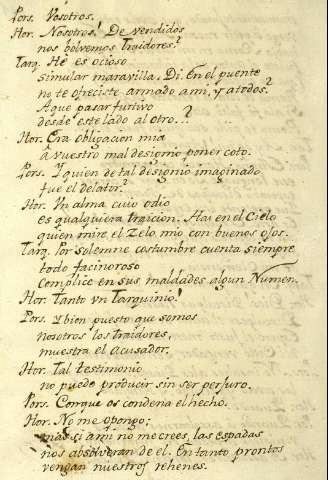 Pors. Vosotros.
Hor. Nosotros! De vendidos
nos bolvemos Traidores?
Tarq. He es ocioso
simular maravilla. Di. En el puente
no te ofreciste armado a mi, y a todos?
A que pasar furtivo
desde este lado al otro..?
Hor. Era obligacion mia
a vuestro mal designio poner coto.
Pors. Y quien de tal designio imaginado
fue el delator?
Hor. Vn alma cuio odio
es qualquiera traicion. Hai en el Cielo
quien mire el Zelo mio con buenos ojos.
Tarq. Por solemne costumbre cuenta siempre
todo facinoroso
complice en sus maldades algun Numen.
Hor. Tanto vn Tarquinio!
Pors. Y bien puesto que somos
nosotros los traidores,
muestra el acusador.
Hor. Tal testimonio
no puedo producir sin ser perjuro.
Pors. Conque os condena el hecho.
Hor. No me opongo;
mas si a mi no me crees, las espadas
nos absolveran de el. En tanto prontos
vengan nuestros rehenes.